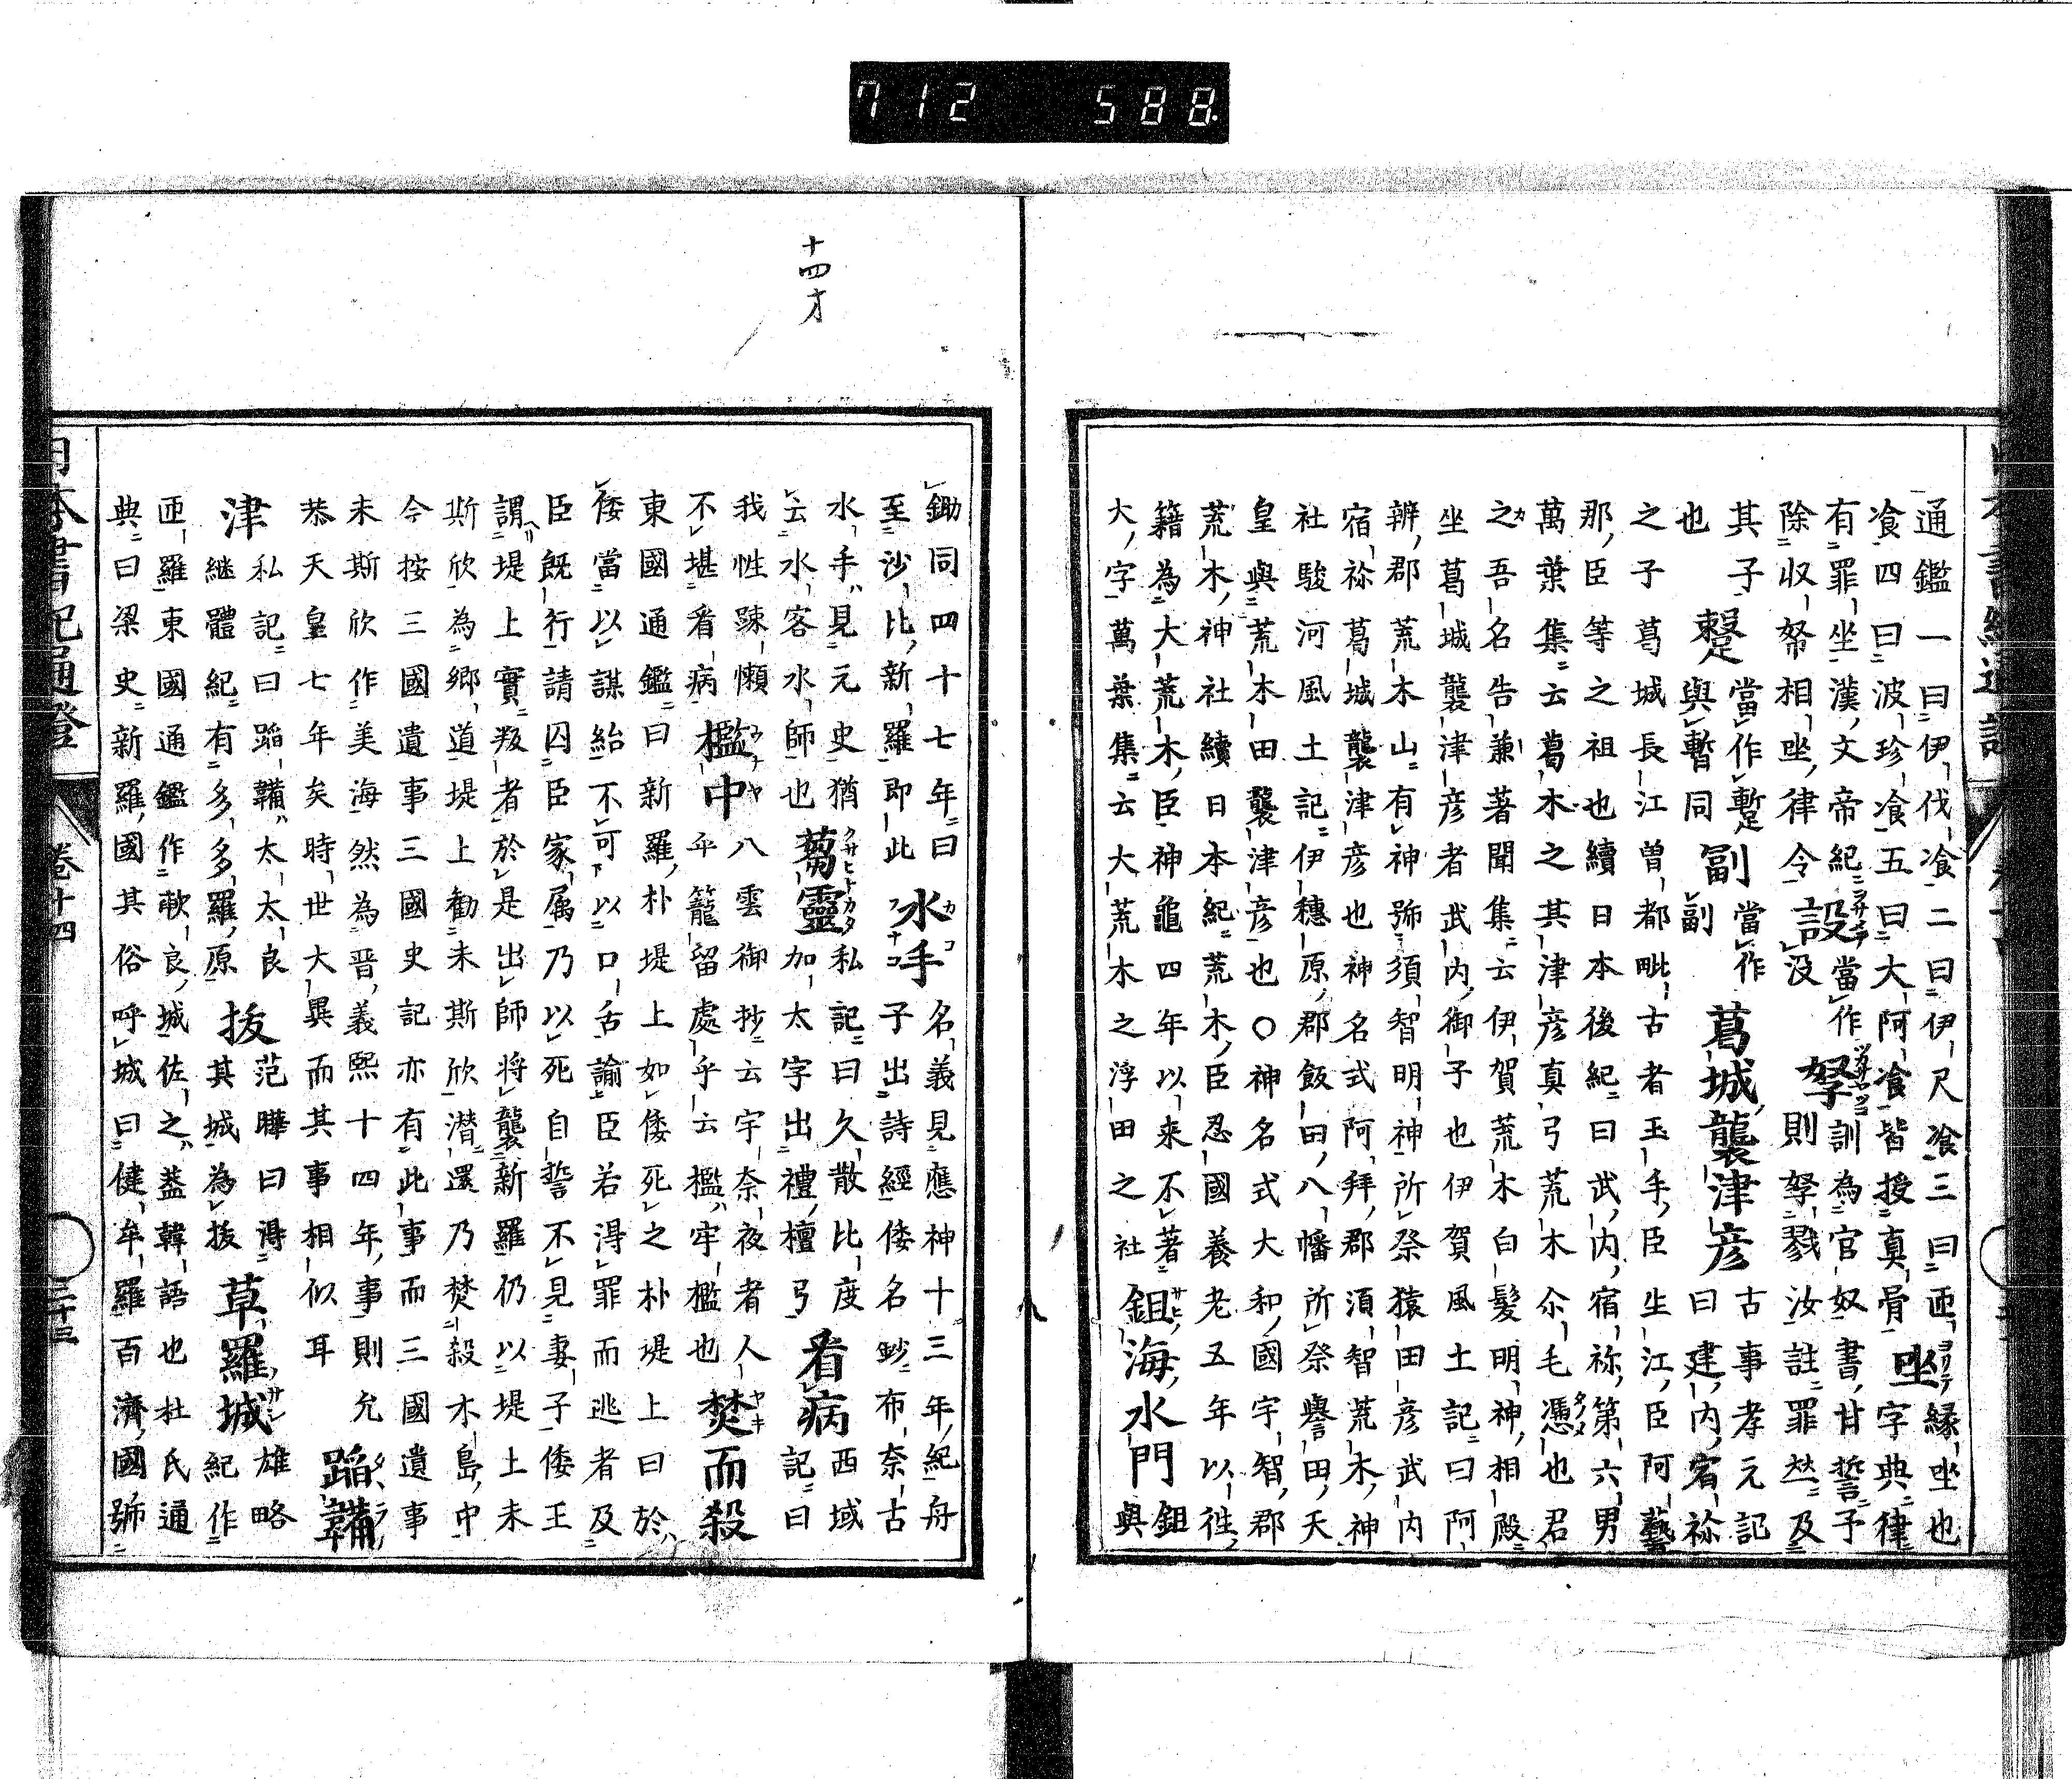 712 588.
通鑑一曰伊伐飡二曰伊尺飡三曰迊縁坐也
飡四曰波珍飡五曰大阿飡皆授真骨坐字典律
有罪坐漢文帝紀設當作訓為官奴書甘誓予
除収帑相坐律令没孥則孥戮汝註罪𡘋及
其子蹔當作暫副當作葛城襲津彦古事孝元記
也與暫同副曰建内宿祢
之子葛城長江曽都毗古者玉手臣生江臣阿藝
那臣等之祖也續日本後紀曰武内宿祢第六男
萬葉集云葛木之其津彦真弓荒木尓毛憑也君
之吾名告兼著聞集云伊賀荒木白髪明神相殿
坐葛城襲津彦者武内御子也伊賀風土記曰阿
辨郡荒木山有神號須智明神所祭猿田彦武内
宿祢葛城襲津彦也神名式阿拜郡須智荒木神
社駿河風土記伊穗原郡飯田八幡所祭譽田天
皇與荒木田襲津彦也〇神名式大和國宇智郡
荒木神社續日本紀荒木臣忍國養老五年以徃
籍為大荒木臣神龜四年以来不著鉏海水門鉏
大字萬葉集云大荒木之浮田之社與
十四才
鋤同四十七年曰水手名義見應神十三年紀舟
至沙比新羅即此子出詩經倭名鈔布奈古
水手見元史猶蒭靈私記曰久散比度看病西域
云水客水師也加太字出禮檀弓記曰
我性踈懶檻中八雲御抄云宇奈夜者人焚而殺
不堪看病乎籠留處乎云檻牢檻也
東國通鑑曰新羅朴堤上如倭死之朴堤上曰於
倭當以謀紿不可以口舌諭臣若得罪而逃者及
臣既行請囚臣家属乃以死自誓不見妻子倭王
謂堤上實叛者於是出師将襲新羅仍以堤上未
斯欣為郷道堤上勸未斯欣潜還乃焚殺木島中
今按三國遺事三國史記亦有此事而三國遺事
未斯欣作美海然為晋義熙十四年事則允
恭天皇七年矣時世大異而其事相似耳蹈鞴
津私記曰蹈鞴太太良抜范曄曰得草羅城雄略
継體紀有多多羅原其城為抜紀作
迊羅東國通鑑作歃良城佐之蓋韓語也杜氏通
典曰梁史新羅國其俗呼城曰健牟羅百濟國號
日本書紀通證
卷十四
三十三